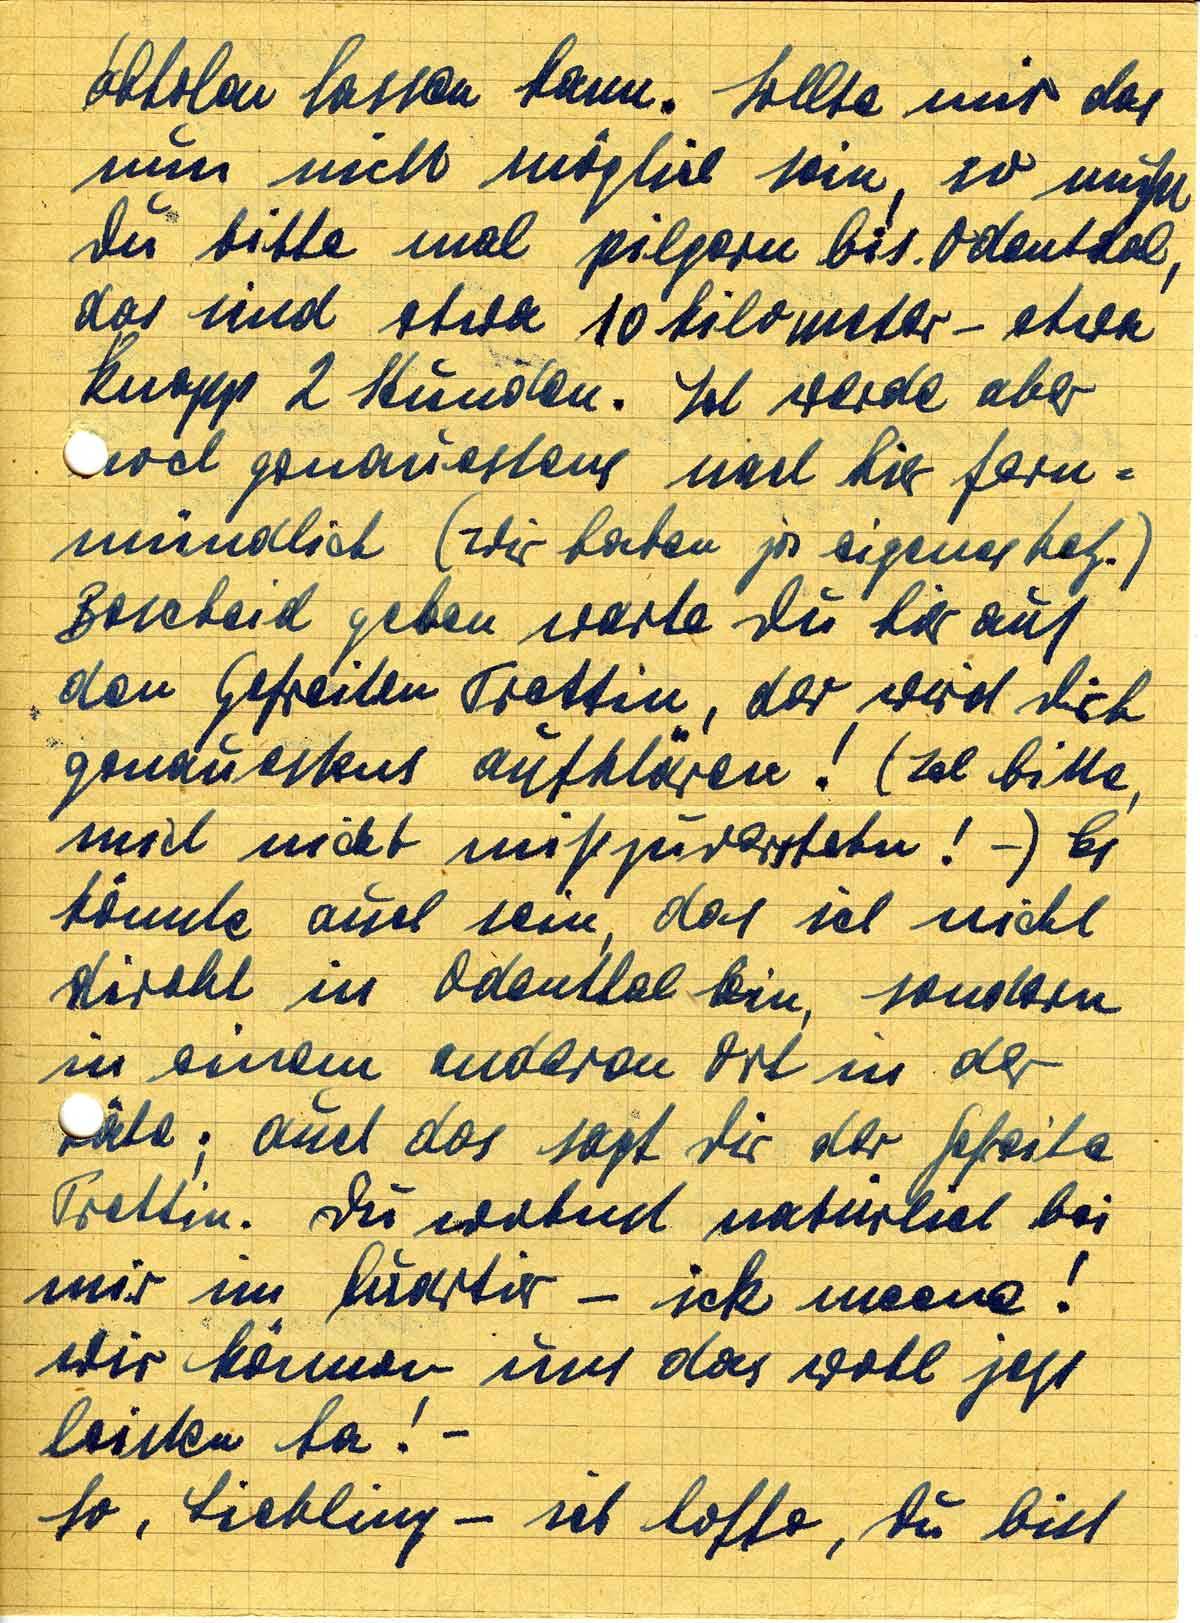 abholen lassen kann. Sollte mir das
nun nicht möglich sein, so mußt
Du bitte mal pilgern bis Odenthal,
das sind etwa 10 Kilometer – etwa
knapp 2 Stunden. Ich werde aber
noch genauestens nach hier fern=
mündlich (wir haben ja eigenes Netz.)
Bescheid geben warte Du hier auf
den Gefreiten Trettin, der wird Dich
genauestens aufklären! (Ich bitte,
mich nicht mißzuverstehn! –) Es
könnte auch sein, das ich nicht
direkt in Odenthal bin, sondern
in einem anderen Ort in der
Nähe; auch das sagt Dir der Gefreite
Trettin. Du wohnst natürlich bei
mir im Quartier – ick meene!
Wir können uns das wohl jetzt
leisten ha! –
So, Liebling – ich hoffe, Du bist